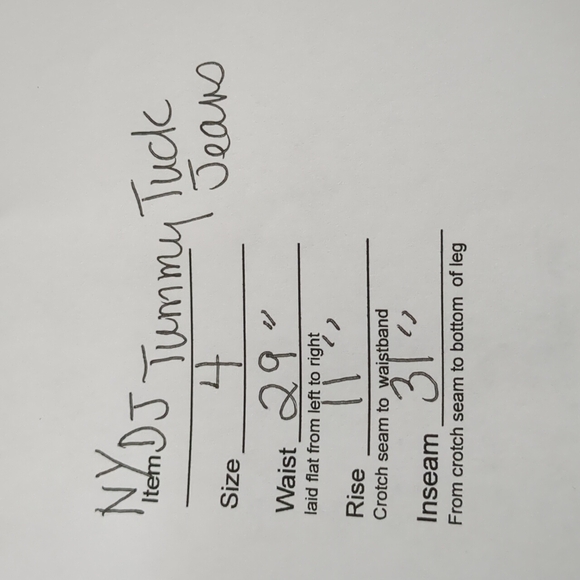 NYDJ Tummy Tuck
Jeans
Item
Size 4
Waist 29"
laid flat from left to right
Rise 11"
Crotch seam to waistband
Inseam 31"
From crotch seam to bottom of leg